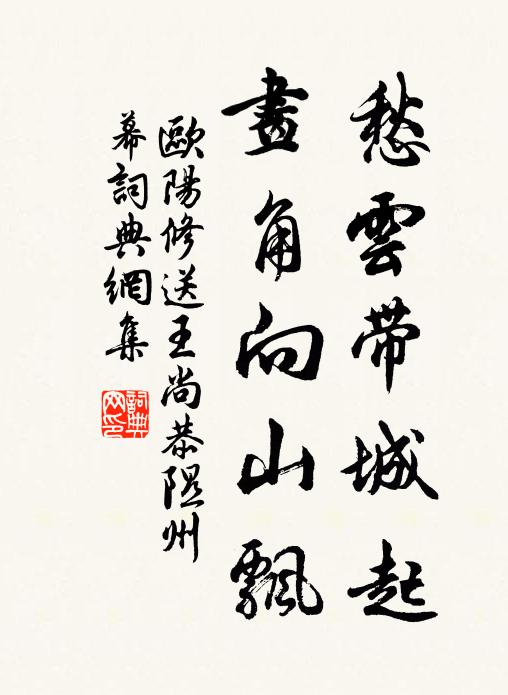 愁雲帶城起
畫角向山飄
歐陽修送王尚恭隰州
幕詞典網集
詞典
网印